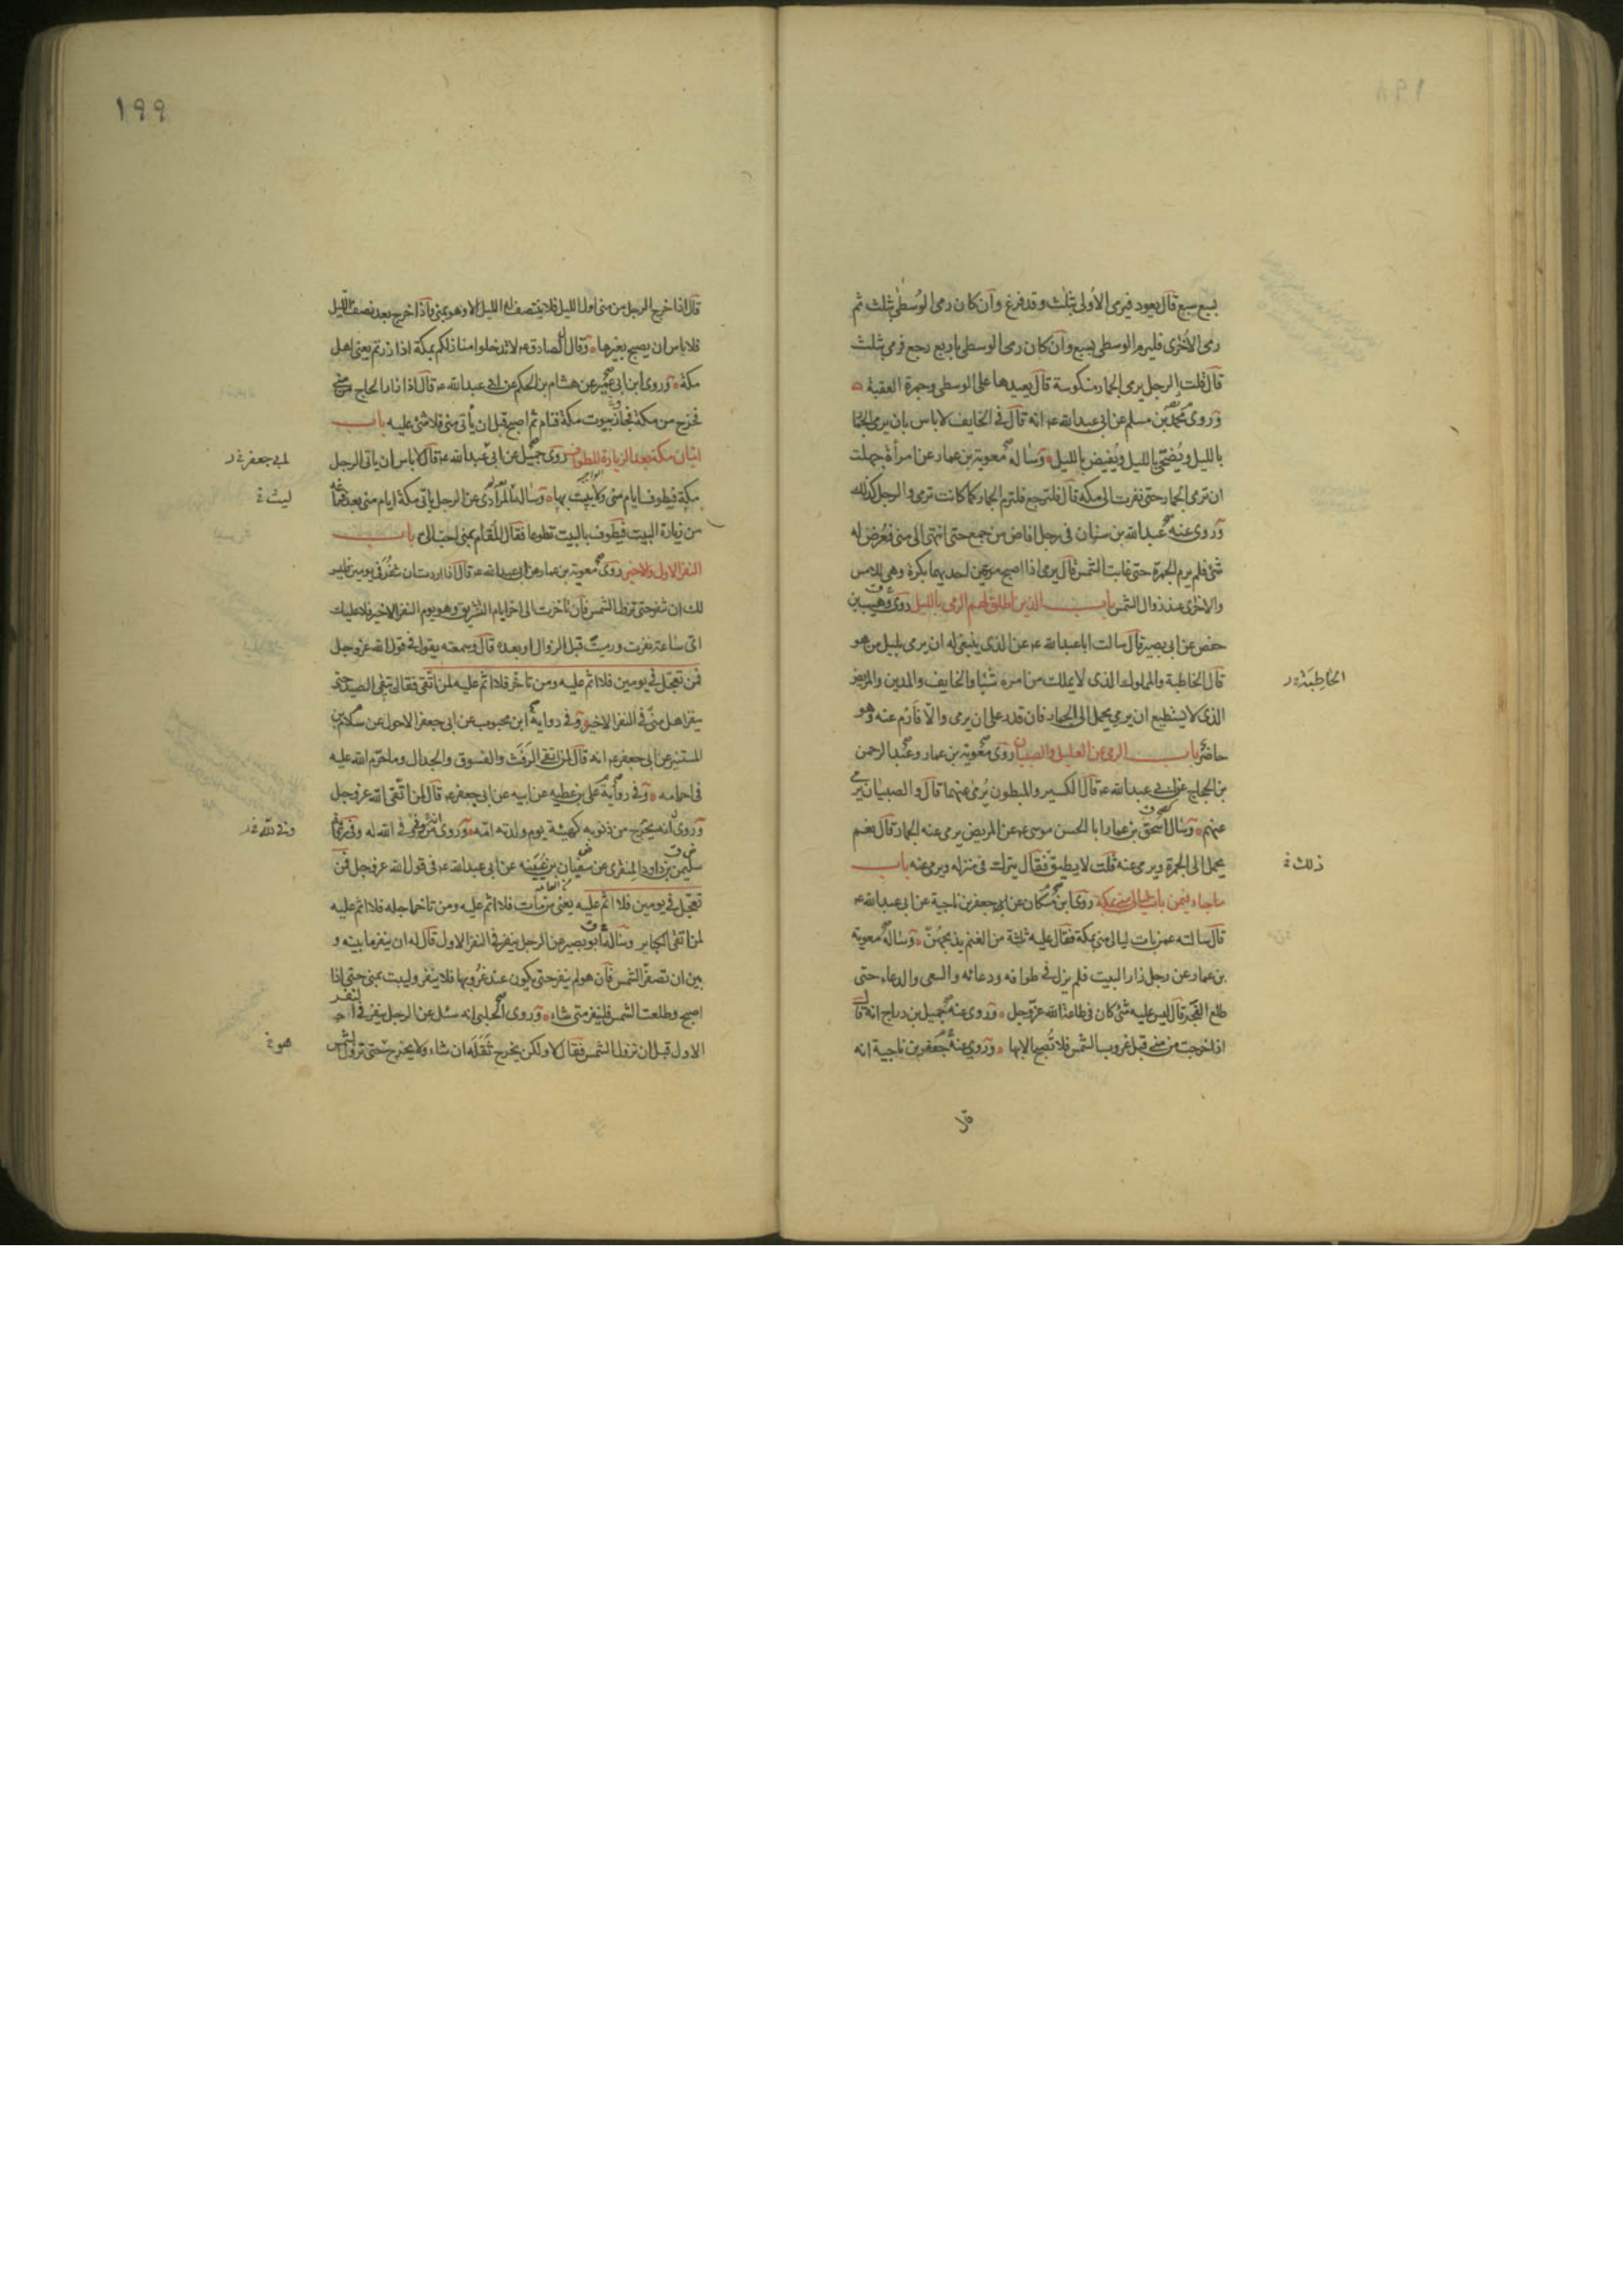 ١٩٨
بسبع سبع قال يعود فيرمى الاولى بثلث وقد فرغ وان كان رمى الوسطى بثلث ثم
رمى الاخرى فليرم الوسطى بسبع وان كان رمى الوسطى باربع رجع فرمى بثلث
قال قلت الرجل يرمى الجمار منكوسة قال يعيدها على الوسطى وجمرة العقبة
وروى محمد بن مسلم عن ابى عبدالله ع انه قال فى الخايف لا باس بان يرمى الجمار
بالليل ويضحى بالليل ويفيض بالليل وساله معوية بن عمار عن امرأة جهلت
ان ترمى الجمار حتى نفرت الى مكة قال فلترجع فلترم الجمار كما كانت ترمى والرجل كذلك
وروى عنه عبدالله بن سنان فى رجل افاض من جمع حتى انتهى الى منى فعرض له
شئ فلم يرم الجمرة حتى غابت الشمس قال يرمى اذا اصبح مرتين احديهما بكرة وهى للامس
والاخرى عند زوال الشمس باب الذين اطلق لهم الرمى بالليل روى وهيب بن
حفص عن ابى بصير قال سالت ابا عبدالله ع عن الذى ينبغى له ان يرمى بليل من هو
قال الخاطبة والمملوك الذى لا يملك من امره شيئا والخايف والمدين والمريض
الخاطبة
الذى لا يستطيع ان يرمى يحمل الى الجمار فان قدر على ان يرمى والا فارم عنه وهو
حاضر باب الرمى عن العليل والصبيان روى معوية بن عمار وعبد الرحمن
بن الحجاج عن ابى عبدالله ع قال الكسير والمبطون يرمى عنهما قال والصبيان يرمى
عنهم وسال اسحق بن عمار ابا الحسن موسى ع عن المريض يرمى عنه الجمار قال نعم
يحمل الى الجمرة ويرمى عنه قلت لا يطيق فقال يترك فى منزله ويرمى عنه باب
ذلك
ماجاء فيمن بات ليالى منى بمكة روى ابن مسكان عن جعفر بن ناجية عن ابى عبدالله ع
قال سالته عمن بات ليالى منى بمكة فقال عليه ثلثة من الغنم يذبحهن وساله معوية
بن عمار عن رجل زار البيت فلم يزل فى طوافه ودعائه والسعى والدعاء حتى
طلع الفجر قال ليس عليه شئ كان فى طاعة الله عز وجل وروى عنه جميل بن دراج انه قال
اذا خرجت من منى قبل غروب الشمس فلا تصبح الا بها وروى عنه جعفر بن ناجية انه
قال
١٩٩
قال اذا خرج الرجل من منى اول الليل فلا ينتصف له الليل الا وهو بمنى واذا خرج بعد نصف الليل
فلا باس ان يصبح بغيرها وقال الصادق ع لا تدخلوا منازلكم بمكة اذا زرتم يعنى اهل
مكة وروى ابن ابى عمير عن هشام بن الحكم عن ابى عبدالله ع قال اذا زار الحاج من منى
فخرج من مكة فجاز بيوت مكة فنام ثم اصبح قبل ان يأتى منى فلا شئ عليه باب
اتيان مكة بعد الزيارة للطواف روى جميل عن ابى عبدالله ع قال لا باس ان ياتى الرجل
لابى جعفر
مكة فيطوف ايام منى ولا يبيت بها وساله المرادى عن الرجل ياتى مكة ايام منى بعد فراغه
ليث
من زيارة البيت فيطوف بالبيت تطوعا فقال المقام بمنى احب الى باب
النفر الاول والاخير روى معوية بن عمار عن ابى عبدالله ع قال اذا اردت ان تنفر فى يومين فليس
لك ان تنفر حتى تزول الشمس فان تاخرت الى اخر ايام التشريق وهو يوم النفر الاخير فلا عليك
اى ساعة نفرت ورميت قبل الزوال او بعده قال وسمعته يقول فى قول الله عز وجل
فمن تعجل فى يومين فلا اثم عليه ومن تاخر فلا اثم عليه لمن اتقى فقال يتقى الصيد حتى
ينفر اهل منى فى النفر الاخير وفى رواية ابن محبوب عن ابى جعفر الاحول عن سلام بن
المستنير عن ابى جعفر ع انه قال لمن اتقى الرفث والفسوق والجدال وما حرم الله عليه
فى احرامه وفى رواية على بن عطيه عن ابيه عن ابى جعفر ع قال لمن اتقى الله عز وجل
وروى انه يخرج من ذنوبه كهيئة يوم ولدته امه وروى من وفى وفى الله له وفى رواية
سليمن بن داود المنقرى عن سفيان بن عيينه عن ابى عبدالله ع فى قول الله عز وجل فمن
تعجل فى يومين فلا اثم عليه يعنى من مات فلا اثم عليه ومن تاخر اجله فلا اثم عليه
لمن اتقى الكباير وساله ابو بصير عن الرجل ينفر فى النفر الاول قال له ان ينفر ما بينه و
بين ان تصفر الشمس فان هو لم ينفر حتى يكون عند غروبها فلا ينفر وليبت بمنى حتى اذا
اصبح وطلعت الشمس فلينفر متى شاء وروى الحلبى انه سئل عن الرجل ينفر فى النفر
الاول قبل ان تزول الشمس فقال لا ولكن يخرج ثقله ان شاء ولا يخرج حتى تزول الشمس
هو